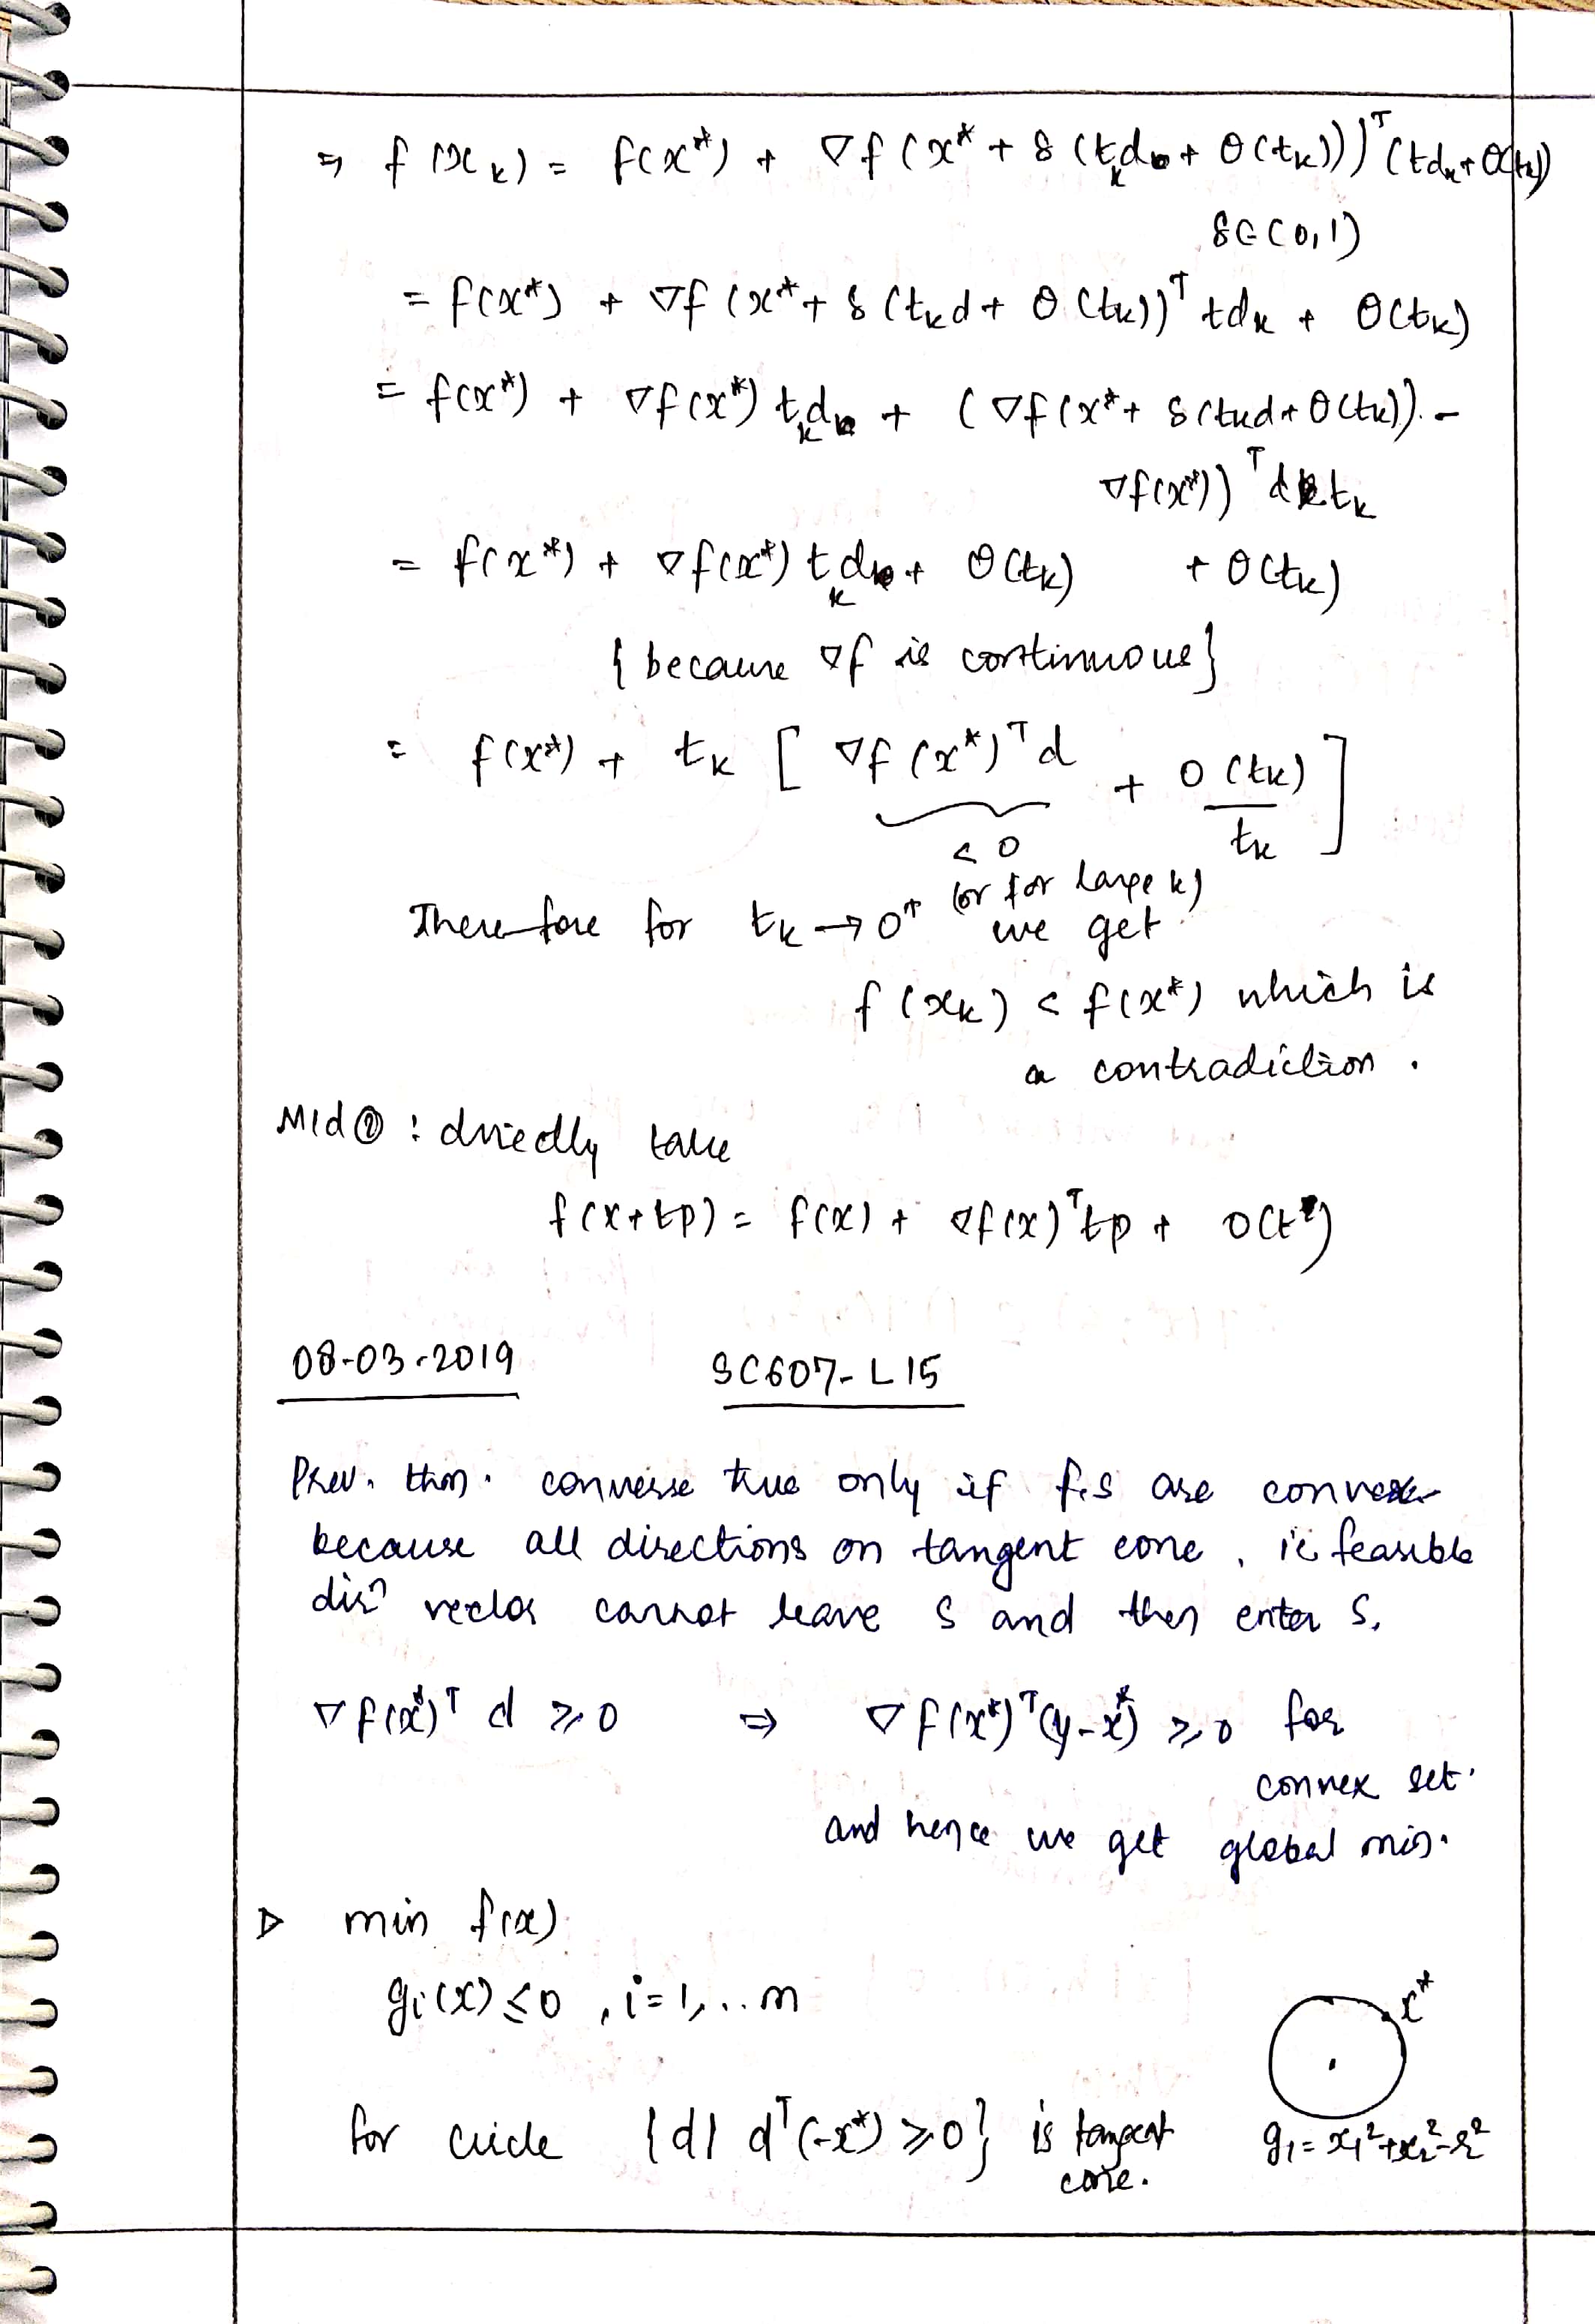 ⇒ f(x_k) = f(x*) + ∇f(x* + δ(t_k d + O(t_k)))ᵀ(td_k + O(t_k))
δ∈(0,1)
= f(x*) + ∇f(x* + δ(t_k d + O(t_k))ᵀ td_k + O(t_k)
= f(x*) + ∇f(x*) t_k d + (∇f(x* + δ(t_k d + O(t_k)) -
∇f(x*))ᵀ d t_k
= f(x*) + ∇f(x*) t_k d + O(t_k) + O(t_k)
{because ∇f is continuous}
= f(x*) + t_k [ ∇f(x*)ᵀd + O(t_k)/t_k ]
< 0
(or for large k)
Therefore for t_k → 0⁺ we get
f(x_k) < f(x*) which is
a contradiction.
Mtd ② : directly take
f(x+tp) = f(x) + ∇f(x)ᵀtp + O(t²)
08-03-2019 SC607-L15
Prev. thm. converse true only if f, S are convex
because all directions on tangent cone, ie feasible
dirⁿ vector cannot leave S and then enter S.
∇f(x*)ᵀ d ≥ 0 ⇒ ∇f(x*)ᵀ(y-x*) ≥ 0 for
convex set.
and hence we get global min.
▷ min f(x)
g_i(x) ≤ 0 , i=1,..m
x*
for circle {d| dᵀ(-x*) ≥ 0} is tangent
cone.
g₁ = x₁²+x₂²-r²